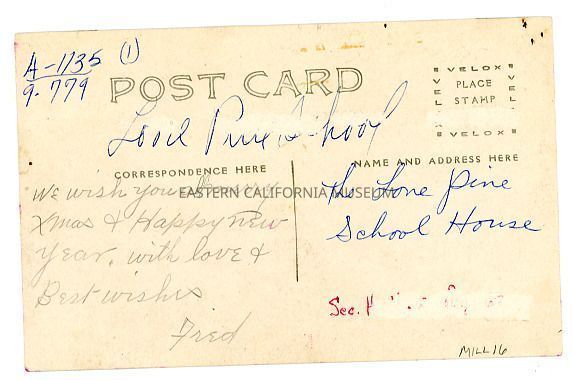 A-1135 (1)
9-779
POST CARD
VELOX
VELOX PLACE VELOX
STAMP
VELOX
Pine School
CORRESPONDENCE HERE
NAME AND ADDRESS HERE
We wish you
EASTERN CALIFORNIA MUSEUM
The Lone Pine
Xmas & Happy New
School House
Year. with love &
Best wishes
Sec.
Fred
MILL 16